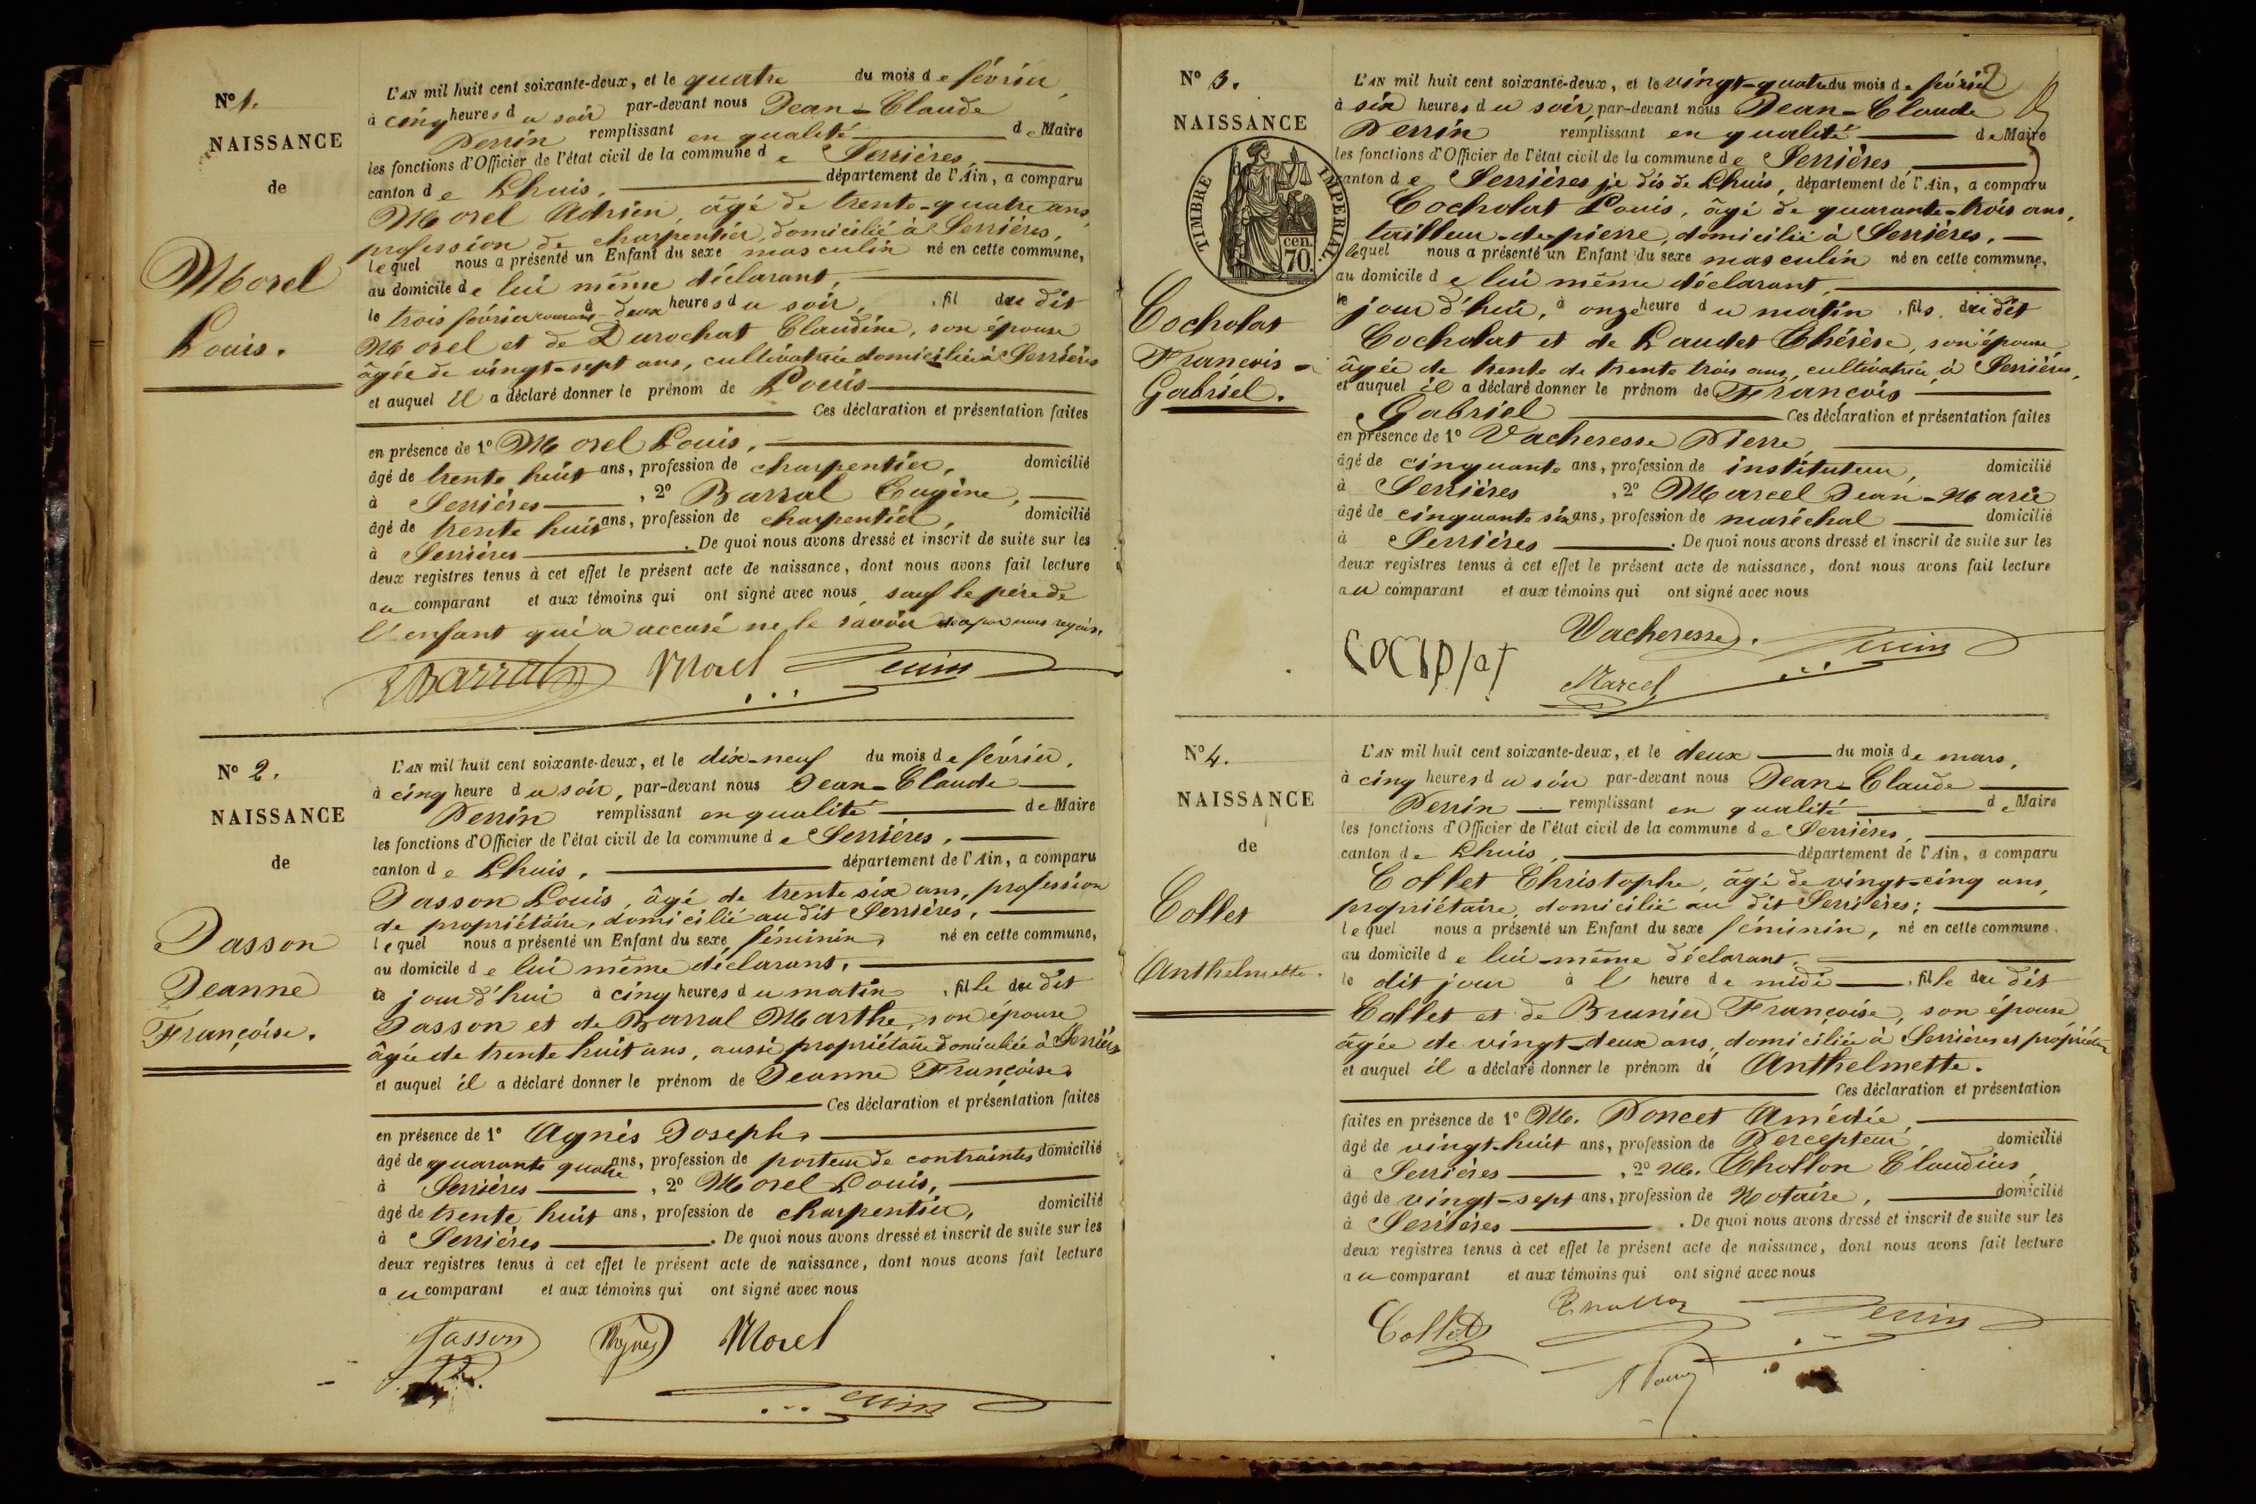 N° 1.
NAISSANCE
de
Morel
Louis.
L'AN mil huit cent soixante-deux, et le quatre du mois de février,
à cinq heures du soir par-devant nous Jean-Claude
Perrin remplissant en qualité de Maire
les fonctions d'Officier de l'état civil de la commune de Serrières,
canton de Lhuis, département de l'Ain, a comparu
Morel Adrien, âgé de trente-quatre ans,
profession de charpentier, domicilié à Serrières,
lequel nous a présenté un Enfant du sexe masculin né en cette commune,
au domicile de lui même déclarant,
le trois février courant à deux heures du soir, fil du dit
Morel et de Durochat Claudine, son épouse
âgée de vingt-sept ans, cultivatrice domiciliée à Serrières
et auquel il a déclaré donner le prénom de Louis
Ces déclaration et présentation faites
en présence de 1° Morel Louis,
âgé de trente huit ans, profession de charpentier, domicilié
à Serrières, 2° Barral Eugène,
âgé de trente huit ans, profession de charpentier, domicilié
à Serrières. De quoi nous avons dressé et inscrit de suite sur les
deux registres tenus à cet effet le présent acte de naissance, dont nous avons fait lecture
au comparant et aux témoins qui ont signé avec nous, sauf le père de
l'enfant qui a accusé ne le savoir
Barral Morel Perrin
N° 2.
NAISSANCE
de
Jasson
Jeanne
Françoise.
L'AN mil huit cent soixante-deux, et le dix-neuf du mois de février,
à cinq heure du soir, par-devant nous Jean-Claude
Perrin remplissant en qualité de Maire
les fonctions d'Officier de l'état civil de la commune de Serrières,
canton de Lhuis, département de l'Ain, a comparu
Jasson Louis, âgé de trente six ans, profession
de propriétaire, domicilié au dit Serrières,
lequel nous a présenté un Enfant du sexe féminin, né en cette commune,
au domicile de lui même déclarant,
ce jour d'hui à cinq heures du matin, fille du dit
Jasson et de Barral Marthe, son épouse
âgée de trente huit ans, aussi propriétaire domiciliée à Serrières
et auquel il a déclaré donner le prénom de Jeanne Françoise
Ces déclaration et présentation faites
en présence de 1° Agnès Joseph,
âgé de quarante quatre ans, profession de porteur de contraintes domicilié
à Serrières, 2° Morel Louis,
âgé de trente huit ans, profession de charpentier, domicilié
à Serrières. De quoi nous avons dressé et inscrit de suite sur les
deux registres tenus à cet effet le présent acte de naissance, dont nous avons fait lecture
au comparant et aux témoins qui ont signé avec nous
Jasson Agnès Morel
Perrin
2
N° 3.
NAISSANCE
TIMBRE IMPERIAL
70 cen.
Cocholat
François-
Gabriel.
L'AN mil huit cent soixante-deux, et le vingt-quatre du mois de février
à six heures du soir, par-devant nous Jean-Claude
Perrin remplissant en qualité de Maire
les fonctions d'Officier de l'état civil de la commune de Serrières
canton de Serrières je dis de Lhuis, département de l'Ain, a comparu
Cocholat Louis, âgé de quarante-trois ans,
tailleur-de-pierre, domicilié à Serrières,
lequel nous a présenté un Enfant du sexe masculin né en cette commune,
au domicile de lui même déclarant,
le jour d'hui, à onze heure du matin, fils du dit
Cocholat et de Laudet Thérèse, son épouse
âgée de trente de trente trois ans, cultivatrice à Serrières,
et auquel il a déclaré donner le prénom de François
Gabriel Ces déclaration et présentation faites
en présence de 1° Vacheresse Pierre,
âgé de cinquante ans, profession de instituteur, domicilié
à Serrières, 2° Marcel Jean-Marie
âgé de cinquante six ans, profession de maréchal domicilié
à Serrières. De quoi nous avons dressé et inscrit de suite sur les
deux registres tenus à cet effet le présent acte de naissance, dont nous avons fait lecture
au comparant et aux témoins qui ont signé avec nous
Vacheresse. Perrin
Marcel
N° 4.
NAISSANCE
de
Collet
Anthelmette.
L'AN mil huit cent soixante-deux, et le deux du mois de mars,
à cinq heures du soir par-devant nous Jean-Claude
Perrin remplissant en qualité de Maire
les fonctions d'Officier de l'état civil de la commune de Serrières,
canton de Lhuis, département de l'Ain, a comparu
Collet Christophe, âgé de vingt-cinq ans,
propriétaire, domicilié au dit Serrières;
lequel nous a présenté un Enfant du sexe féminin, né en cette commune,
au domicile de lui-même déclarant,
le dit jour à l heure de midi, fille du dit
Collet et de Brunier Françoise, son épouse
âgée de vingt-deux ans, domiciliée à Serrières et propriétre
et auquel il a déclaré donner le prénom de Anthelmette.
Ces déclaration et présentation
faites en présence de 1° M. Poncet Amédée,
âgé de vingt-huit ans, profession de Percepteur, domicilié
à Serrières, 2° M. Chollon Claudius,
âgé de vingt-sept ans, profession de Notaire, domicilié
à Serrières. De quoi nous avons dressé et inscrit de suite sur les
deux registres tenus à cet effet le présent acte de naissance, dont nous avons fait lecture
au comparant et aux témoins qui ont signé avec nous
Collet Perrin